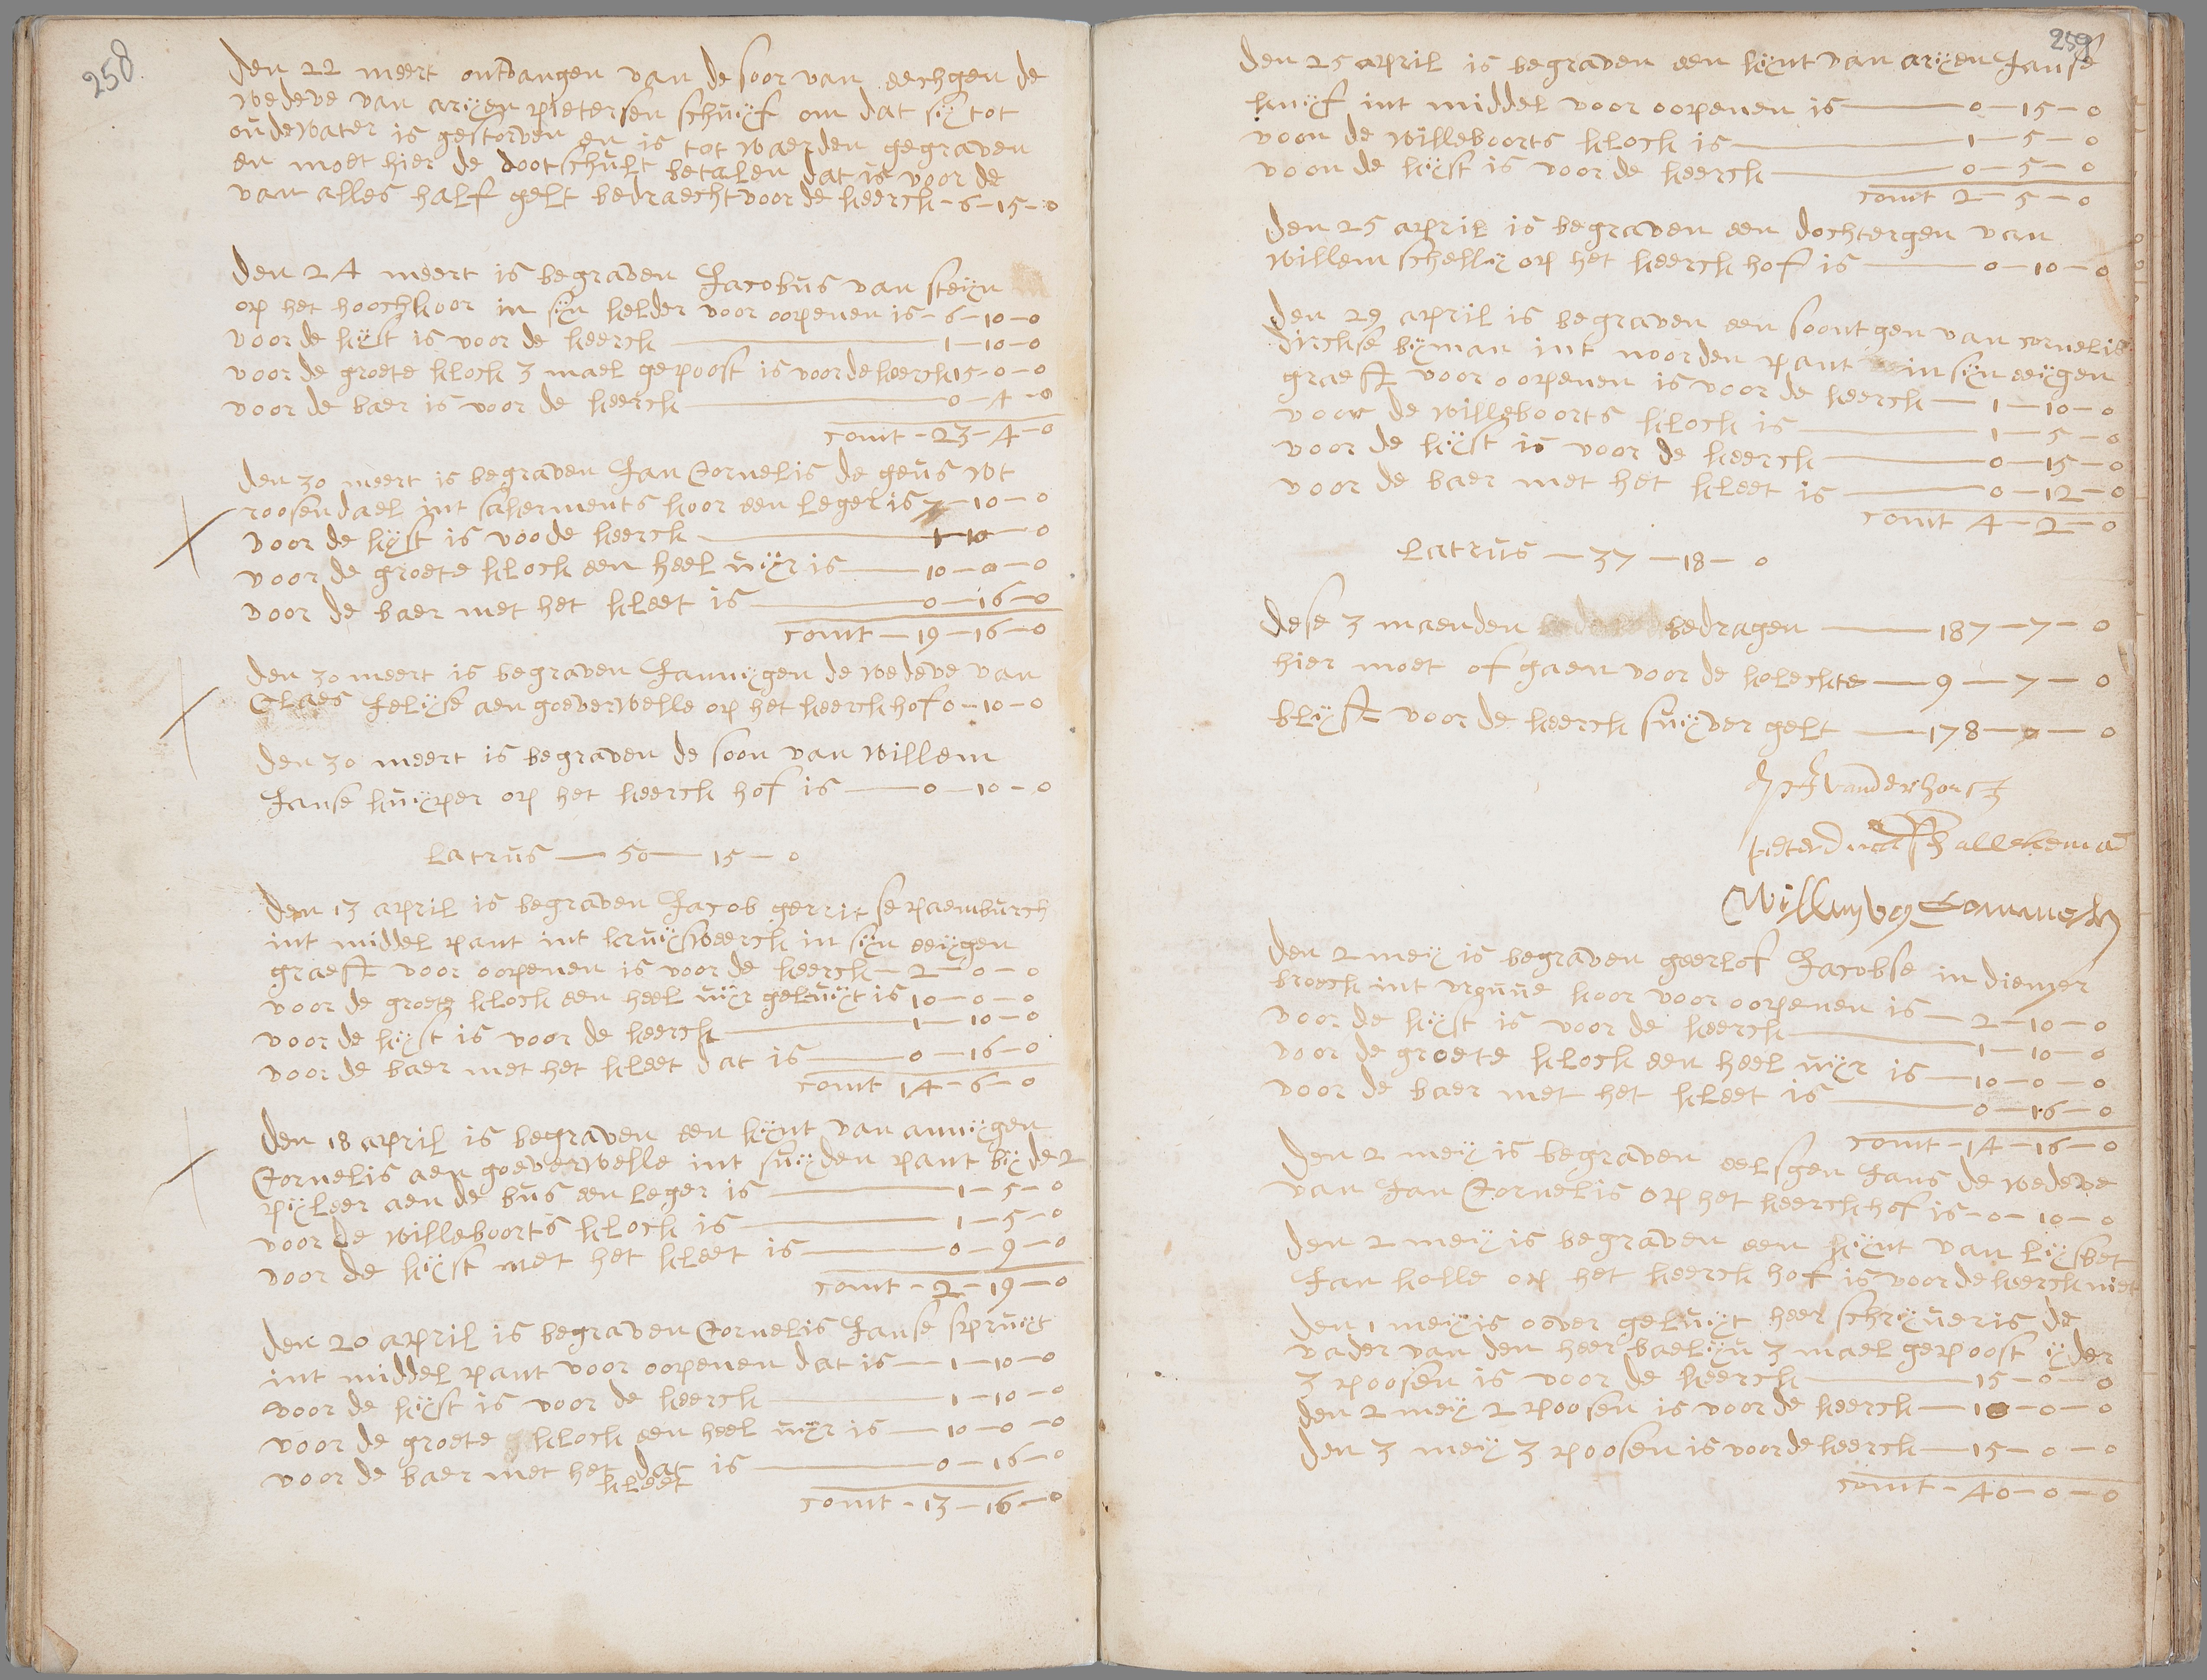 258
den 22 meert ontvangen van de soor van eechgen de
wedeve van arijen pietersen schuijf om dat sij tot
oudewater is gestorven en is tot waerden gegraven
en moet hier de dootschult betalen dat is voor de
van alles half gelt bedraecht voor de keerck - 6 - 15 - 0
den 24 meert is begraven Jacobus van steijn
op het hoochkoor in sijn kelder voor oopenen is - 6 - 10 - 0
voor de kijst is voor de keerck - 1 - 10 - 0
voor de groete klock 3 mael gepoost is voor de keerck 15 - 0 - 0
voor de baer is voor de keerck - 0 - 4 - 0
comt - 23 - 4 - 0
den 30 meert is begraven Jan Cornelis de geus wt
roosendael int sakerments koor een leger is 7 - 10 - 0
voor de kijst is voo de keerck - 1 - 10 - 0
voor de groete klock een heel uijr is - 10 - 0 - 0
voor de baer met het kleet is - 0 - 16 - 0
comt - 19 - 16 - 0
den 30 meert is begraven Jannijgen de wedeve van
Claes Jelijse aen goeverwelle op het keerckhof 0 - 10 - 0
den 30 meert is begraven de soon van willem
Janse kuijper op het keerck hof is - 0 - 10 - 0
Latrus - 50 - 15 - 0
den 13 april is begraven Jacob gerritse paemburch
int middel pant int kruijsweerck in sijn eeijgen
graeft voor oopenen is voor de keerck - 2 - 0 - 0
voor de groete klock een heel uijr geluijt is 10 - 0 - 0
voor de kijst is voor de keerck - 1 - 10 - 0
voor de baer met het kleet dat is - 0 - 16 - 0
comt 14 - 6 - 0
den 18 april is begraven een kijnt van annijgen
Cornelis aen goeverwelle int suijden pant bij de 2
pijleer aen de bus een leger is - 1 - 5 - 0
voor de willeboorts klock is - 1 - 5 - 0
voor de kijst met het kleet is - 0 - 9 - 0
comt - 2 - 19 - 0
den 20 april is begraven Cornelis Janse spruijt
int middel pant voor oopenen dat is - 1 - 10 - 0
voor de kijst is voor de keerck - 1 - 10 - 0
voor de groete klock een heel uijr is - 10 - 0 - 0
voor de baer met het dat is - 0 - 16 - 0
kleet
comt - 13 - 16 - 0
259
den 25 april is begraven een kijnt van arijen Janse
kuijf int middel voor oopenen is - 0 - 15 - 0
voon de willeboorts klock is - 1 - 5 - 0
voon de kijst is voor de keerck - 0 - 5 - 0
comt 2 - 5 - 0
den 25 april is begraven een dochtergen van
willem schellij op het keerck hof is - 0 - 10 - 0
den 29 april is begraven een soontgen van cornelis
dirckse bijman int noorden pant in sijn eeijgen
graeft voor oopenen is voor de keerck - 1 - 10 - 0
voor de willeboorts klock is - 1 - 5 - 0
voor de kijst is voor de keerck - 0 - 15 - 0
voor de baer met het kleet is - 0 - 12 - 0
comt 4 - 2 - 0
Latrus - 37 - 18 - 0
dese 3 maenden bedragen - 187 - 7 - 0
hier moet of gaen voor de koleckte - 9 - 7 - 0
blijft voor de keerck suijver gelt - 178 - 0 - 0
vanderhorst
pieter
Willem
den 2 meij is begraven geerlof Jacobse in diemer
broeck int vrouue koor voor oopenen is - 2 - 10 - 0
voor de kijst is voor de keerck - 1 - 10 - 0
voor de groete klock een heel uijr is - 10 - 0 - 0
voor de baer met het kleet is - 0 - 16 - 0
comt - 14 - 16 - 0
den 2 meij is begraven eelsgen Jans de wedeve
van Jan Cornelis op het keerckhof is - 0 - 10 - 0
den 2 meij is begraven een kijnt van lijsbet
Jan kolle op het keerck hof is voor de keerck niet
den 1 meij is oover geluijt heer schrijueris de
vader van den heer baeliju 3 mael gepoost ijder
3 poosen is voor de keerck - 15 - 0 - 0
den 2 meij 2 poosen is voor de keerck - 10 - 0 - 0
den 3 meij 3 poosen is voor de keerck - 15 - 0 - 0
comt - 40 - 0 - 0